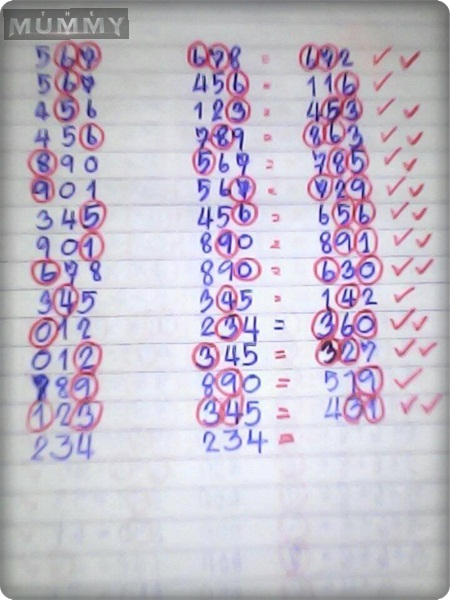 THE
MUMMY
567 678 = 672 ✓✓
567 456 = 116 ✓
456 123 = 453 ✓✓
456 789 = 863 ✓✓
890 567 = 785 ✓✓
901 567 = 729 ✓✓
345 456 = 656 ✓✓
901 890 = 891 ✓✓
678 890 = 630 ✓✓
345 345 = 142 ✓
012 234 = 360 ✓✓
012 345 = 327 ✓✓
789 890 = 519 ✓
123 345 = 431 ✓✓
234 234 =